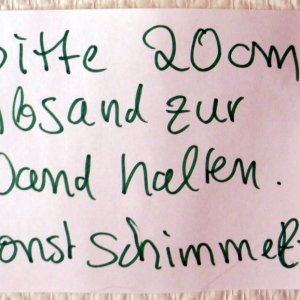 bitte 20cm
Absand zur
Wand halten.
sonst Schimmel